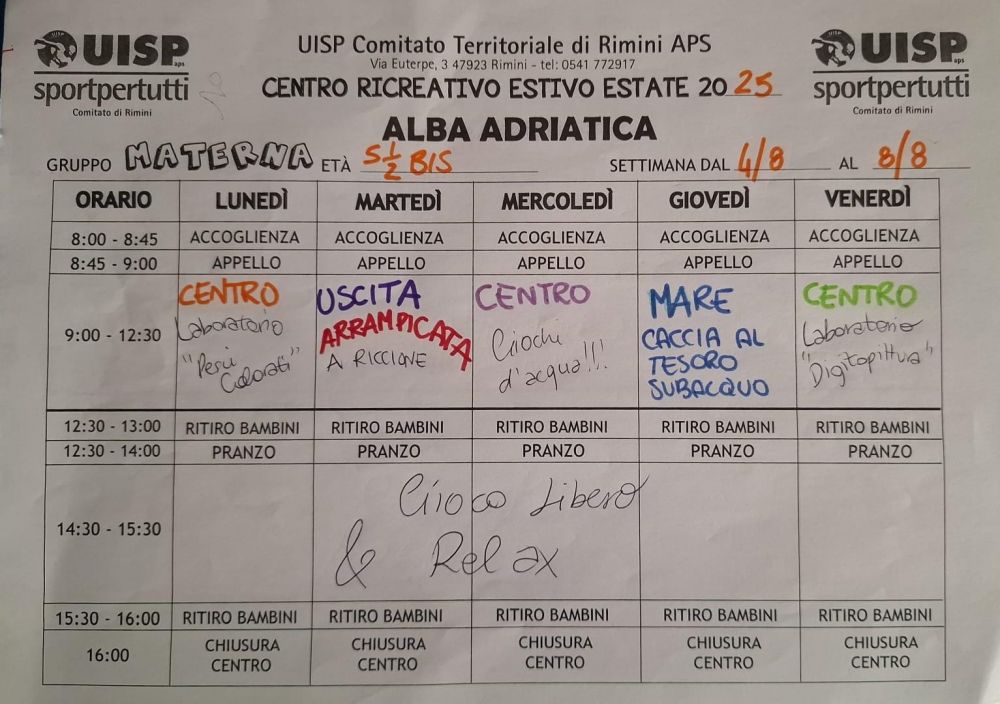 UISP aps
sportpertutti
Comitato di Rimini
UISP Comitato Territoriale di Rimini APS
Via Euterpe, 3 47923 Rimini - tel: 0541 772917
CENTRO RICREATIVO ESTIVO ESTATE 2025
ALBA ADRIATICA
UISP aps
sportpertutti
Comitato di Rimini
GRUPPO MATERNA ETÀ 5 1/2 BIS SETTIMANA DAL 4/8 AL 8/8
ORARIO LUNEDÌ MARTEDÌ MERCOLEDÌ GIOVEDÌ VENERDÌ
8:00 - 8:45 ACCOGLIENZA ACCOGLIENZA ACCOGLIENZA ACCOGLIENZA ACCOGLIENZA
8:45 - 9:00 APPELLO APPELLO APPELLO APPELLO APPELLO
9:00 - 12:30
CENTRO
Laboratorio
"Pesci
Colorati"
USCITA
ARRAMPICATA
A RICCIONE
CENTRO
Giochi
d'acqua!!!
MARE
CACCIA AL
TESORO
SUBACQUO
CENTRO
Laboratorio
"Digitopittura"
12:30 - 13:00 RITIRO BAMBINI RITIRO BAMBINI RITIRO BAMBINI RITIRO BAMBINI RITIRO BAMBINI
12:30 - 14:00 PRANZO PRANZO PRANZO PRANZO PRANZO
14:30 - 15:30
Gioco Libero
& Relax
15:30 - 16:00 RITIRO BAMBINI RITIRO BAMBINI RITIRO BAMBINI RITIRO BAMBINI RITIRO BAMBINI
16:00
CHIUSURA CHIUSURA CHIUSURA CHIUSURA CHIUSURA
CENTRO CENTRO CENTRO CENTRO CENTRO